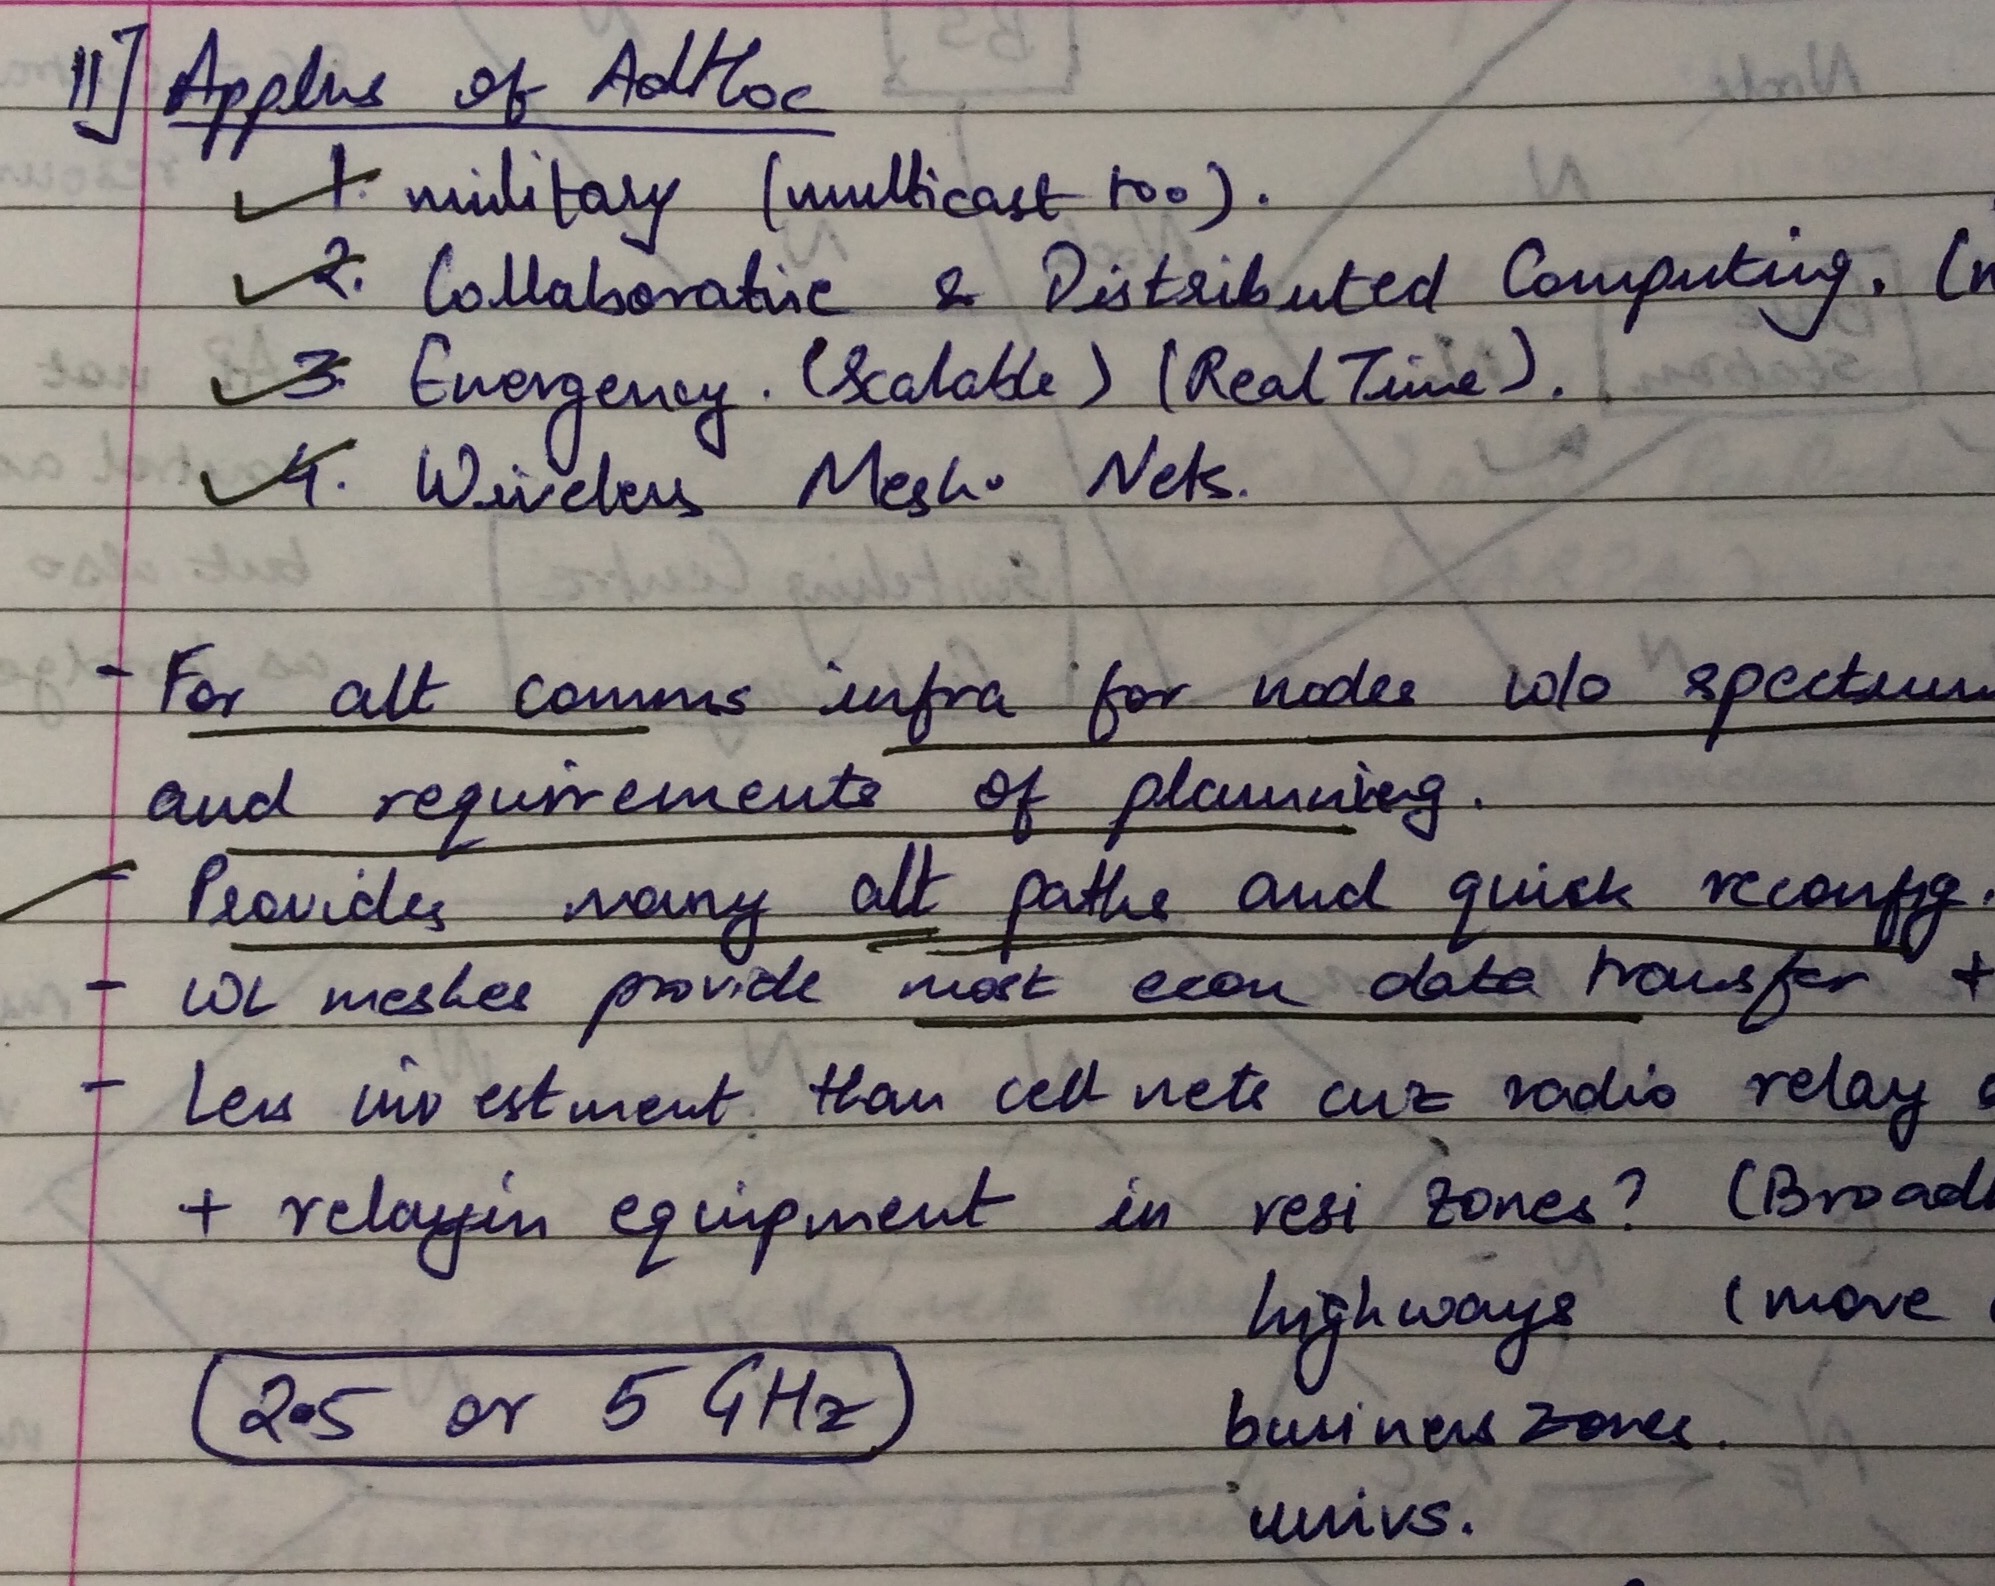 11] Applns of AdHoc
1. military (multicast too).
2. Collaborative & Distributed Computing. (
3. Emergency. (Scalable) (Real Time).
4. Wireless Mesh Nets.
- For alt comms infra for nodes w/o spectrum
and requirements of planning.
- Provides many alt paths and quick reconfig.
- WL meshes provide most econ data transfer +
- Less investment than cell nets cuz radio relay
+ relayin equipment in resi zones? (Broad
highways (move
2.5 or 5 GHz
business zones.
univs.